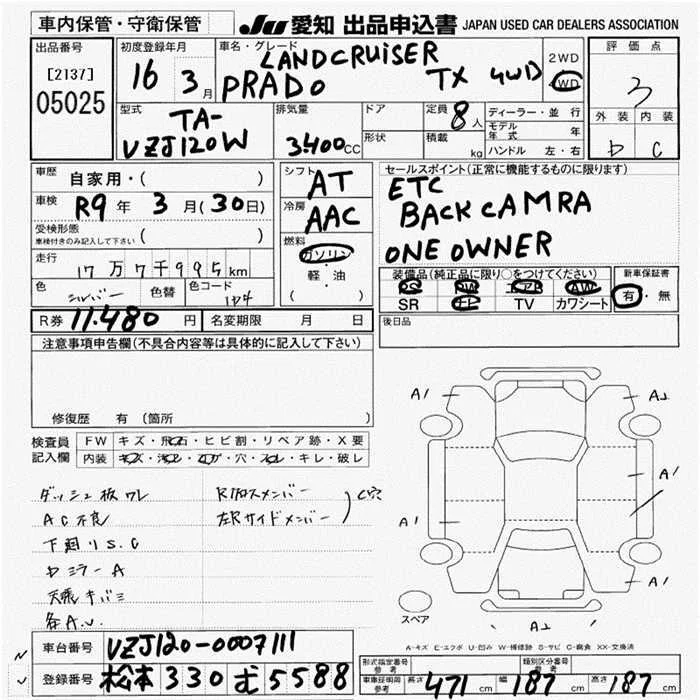 車内保管・守衛保管
JU 愛知 出品申込書 JAPAN USED CAR DEALERS ASSOCIATION
出品番号
[2137]
05025
初度登録年月
16 3月
車名・グレード
LANDCRUISER
PRADO TX 4WD
2WD
4WD
評価点
3
外装 内装
D C
型式
TA-
VZJ120W
排気量
3400CC
ドア
形状
定員 8人
積載 kg
ディーラー・並行
モデル年式 年
ハンドル 左・右
車歴 自家用・( )
車検 R9年 3月(30日)
受検形態
車検付きのみ記入して下さい ( )
走行
17万7千995km
色 シルバー 色替 色コード
R券 11.480円 名変期限 月 日
シフト AT
冷房 AAC
燃料
ガソリン・
軽・油
( )
セールスポイント(正常に機能するものに限ります)
ETC
BACK CAMRA
ONE OWNER
装備品(純正品に限り○をつけてください)
PS PW エアB AW
SR ナビ TV カワシート
新車保証書
有・無
後日品
注意事項申告欄(不具合内容等は具体的に記入して下さい)
修復歴 有 (箇所
検査員記入欄
FW キズ・飛石・ヒビ割・リペア跡・X要
内装 キズ・汚れ・コゲ・穴・スレ・キレ・破レ
ダッシュ板ワレ
AC不良
下廻りS.C
ミラーA
天張キバミ
各A.U
Rクロスメンバー
左Rサイドメンバー
C穴
A1
A1
A1
A1
スペア
A-キズ E-エクボ U-凹み W-補修跡 S-サビ C-腐食 XX-交換済
車台番号 VZJ120-0007111
登録番号 松本 330 む 5588
形式指定番号
参考
類別区分番号
参考
車検証明同
参考
長さ 471cm 幅 187cm 高さ 187cm